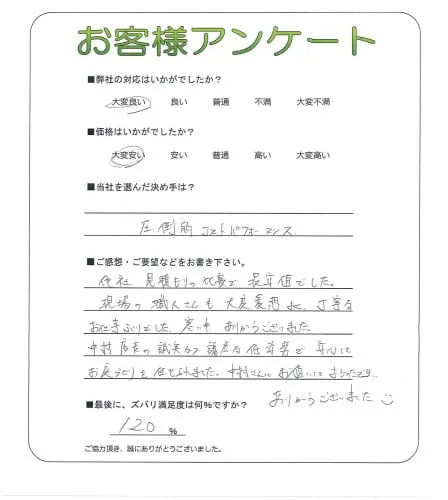 お客様アンケート
■弊社の対応はいかがでしたか?
大変良い 良い 普通 不満 大変不満
■価格はいかがでしたか?
大変安い 安い 普通 高い 大変高い
■当社を選んだ決め手は?
圧倒的 コストパフォーマンス
■ご感想・ご要望などをお書き下さい。
他社 見積もりの比較で 最安値でした。
現場の 職人さんも 大変愛想よく、丁寧な
お仕事ぶりでした。寒い中 ありがとうございました。
中村店長の 誠実かつ 謙虚な 低姿勢で 安心して
お家づくりを 任せられました。中村さんに お願いして よかったです。
ありがとうございました
■最後に、ズバリ満足度は何%ですか?
120 %
ご協力頂き、誠にありがとうございました。